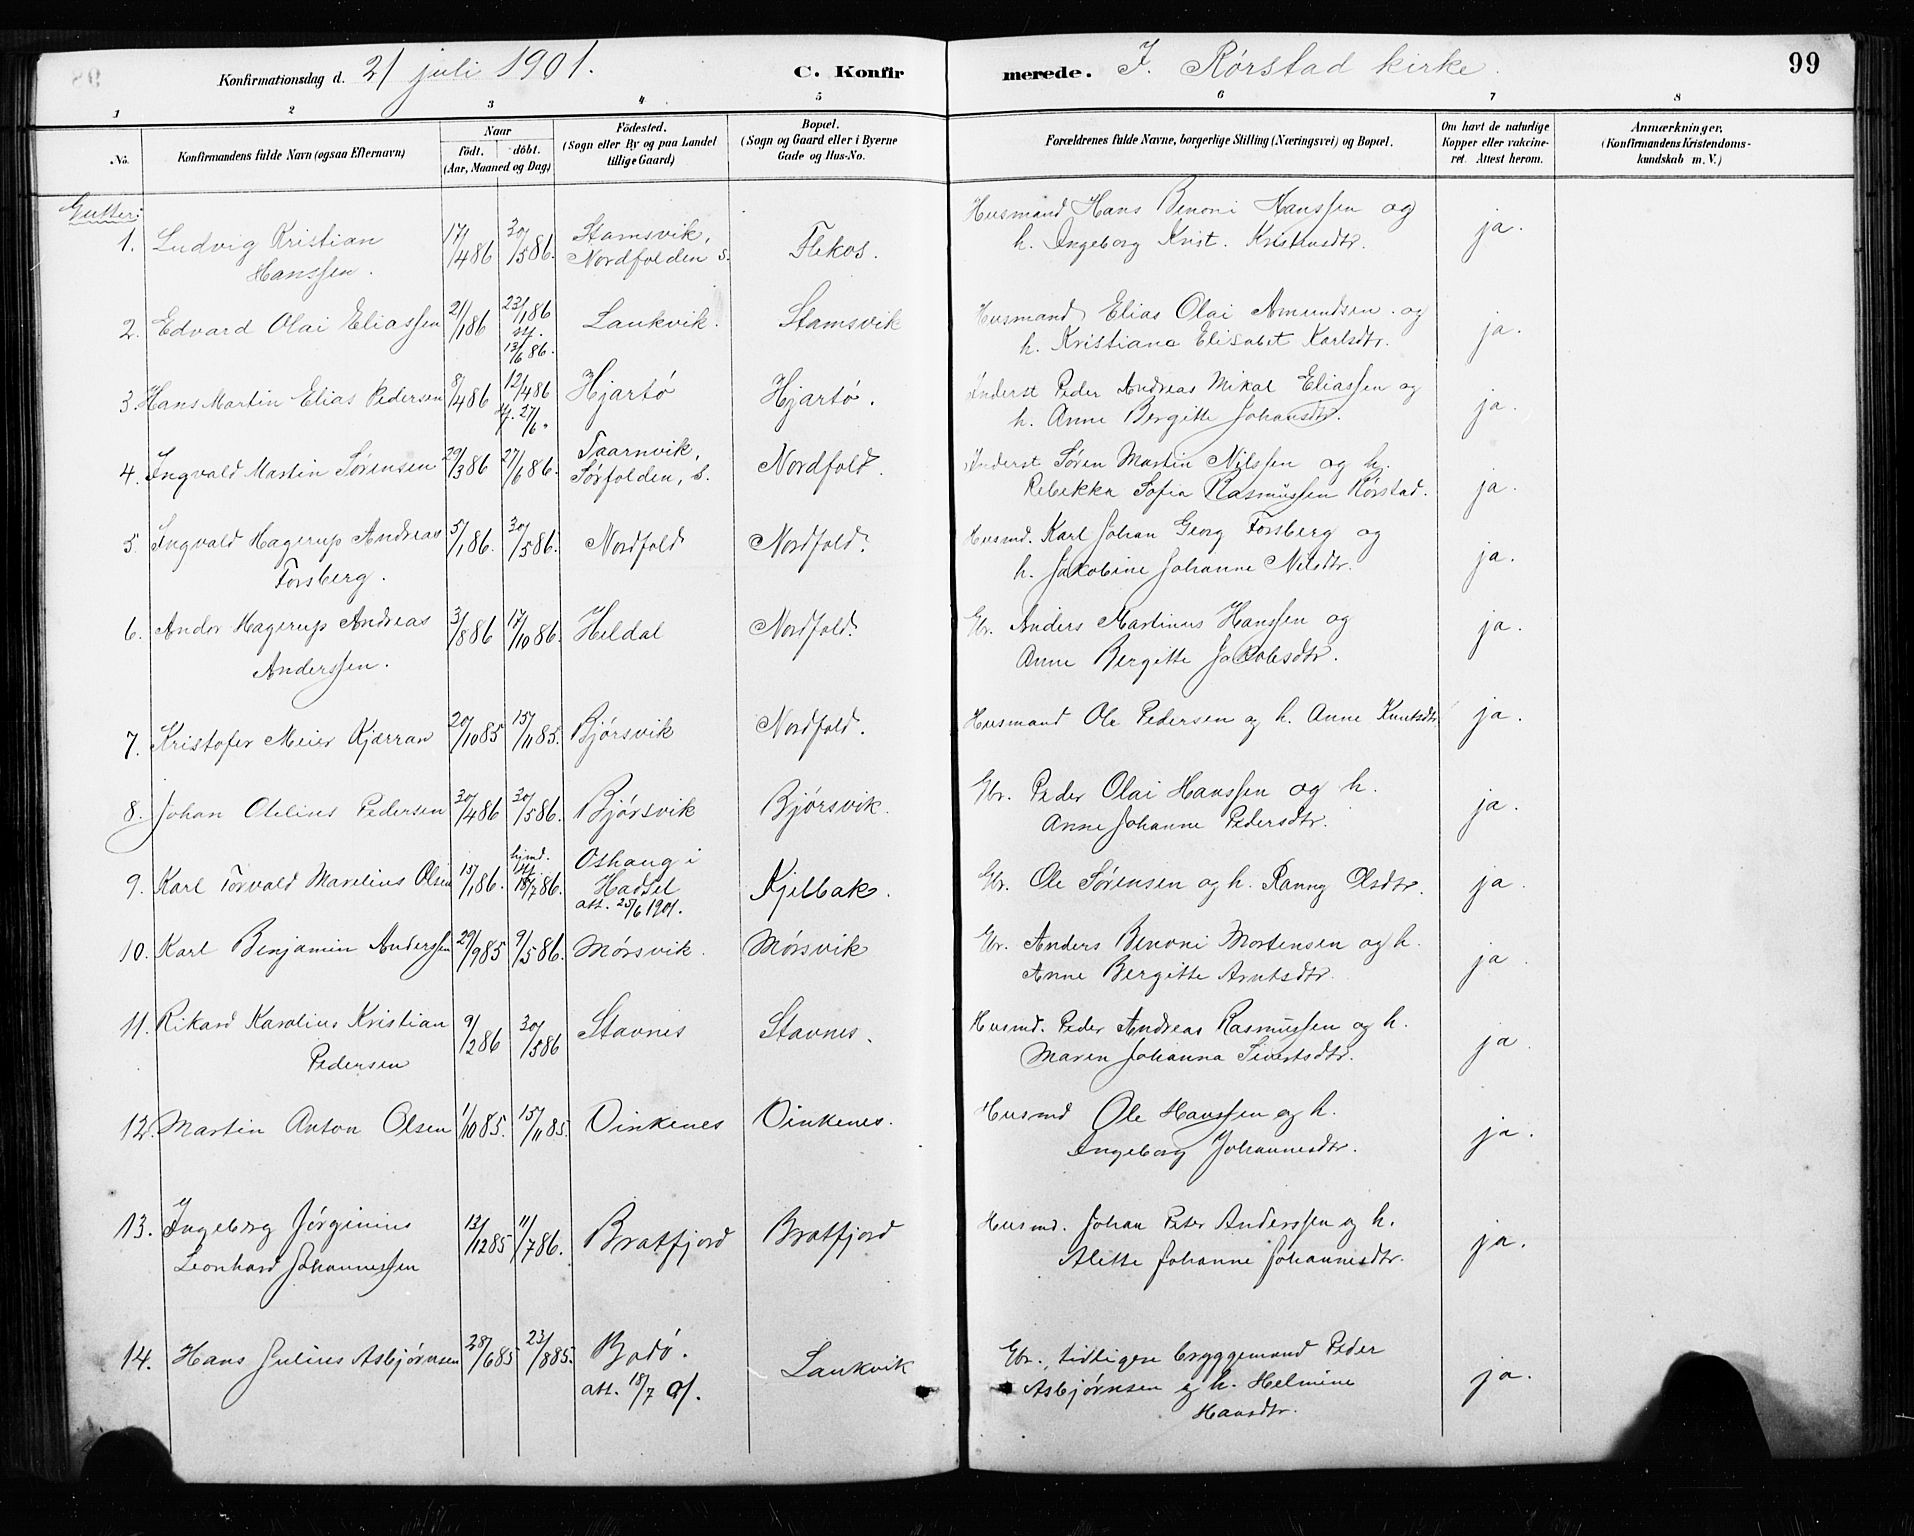 Konfirmationsdag d. 21 juli 1901. C. Konfirmerede. I. Rørstad kirke. 99
1 2 3 4 5 6 7 8
No. Konfirmandens fulde Navn (ogsaa Efternavn) Naar födt. döbt. (Aar, Maaned og Dag) Födested. (Sogn eller By og paa Landet tillige Gaard) Bopæl. (Sogn og Gaard eller i Byerne Gade og Hus-No. Forældrenes fulde Navne, borgerlige Stilling (Næringsvei) og Bopæl. Om havt de naturlige Kopper eller vakcineret. Attest herom. Anmærkninger. (Konfirmandens Kristendomskundskab m. V.)
Gutter:
1. Ludvig Kristian Hanssen. 17/4 86 30/5 86. Stamsvik, Nordfolden s. Flekos. Husmand Hans Benoni Hanssen og h. Ingeborg Krist. Kristensdtr. ja.
2. Edvard Olai Eliassen 21/1 86 23/1 86 st. 13/6 86. Laukvik. Stamsvik Husmand Elias Olai Amundsen og h. Kristiane Elisabet Karlsdtr. ja.
3. Hans Martin Elias Pedersen 8/4 86 12/4 86 st. 27/6. Hjartø Hjartø. Inderst Peder Andreas Mikal Eliassen og h. Anne Bergitte Johansdtr. ja.
4. Ingvald Martin Sørensen 29/3 86 27/6 86. Taarnvik, Sørfolden, s. Nordfold. Inderst Søren Martin Nilssen og h. Rebekka Sofia Rasmussen Rørstad. ja.
5 Ingvald Hagerup Andreas Forsberg. 5/1 86. 30/5 86. Nordfold Nordfold. Husmd. Karl Johan Georg Forsberg og h. Jakobine Johanne Nilsdtr. ja.
6. Andor Hagerup Andreas Anderssen. 3/8 86 17/10 86. Heldal Nordfold. Gbr. Anders Martinus Hanssen og Anne Bergitte Jakobsdtr. ja.
7. Kristofer Meier Kjærran 20/10 85 15/11 85. Bjørsvik Nordfold. Husmand Ole Pedersen og h. Anne Knutsdtr ja.
8. Johan Olelius Pedersen 30/4 86 30/5 86. Bjørsvik Bjørsvik. Gbr. Peder Olai Hanssen og h. Anne Johanne Pedersdtr. ja.
9. Karl Torvald Marelius Olsen 15/1 86. hjmd. 18/7 86. Oshaug i Hadsel att. 25/6 1901. Kjelbak. Gbr. Ole Sørensen og h. Ranny Olsdtr. ja.
10. Karl Benjamin Anderssen 29/9 85 9/5 86. Mørsvik. Mørsvik Gbr. Anders Benoni Mortensen og h. Anne Bergitte Arntsdtr. ja.
11. Rikard Karolius Kristian Pedersen 9/2 86 30/5 86 Stavnes Stavnes. Husmd. Peder Andreas Rasmussen og h. Maren Johanna Sivertsdtr. ja.
12. Martin Anton Olsen 1/10 85. 15/11 85. Vinkenes Vinkenes. Husmd Ole Hanssen og h. Ingeborg Johannesdtr. ja.
13. Ingeberg Jørginius Leonhard Johannessen 13/12 85 11/7 86. Bratfjord Bratfjord Husmd. Johan Peter Anderssen og h. Alette Johanne Johannesdtr. ja.
14. Hans Julius Asbjørnsen 28/6 85 23/8 85. Bodø. att. 18/7 01. Laukvik Gbr., tidligere bryggemand Peder Asbjørnsen og h. Helmine Hansdtr. ja.